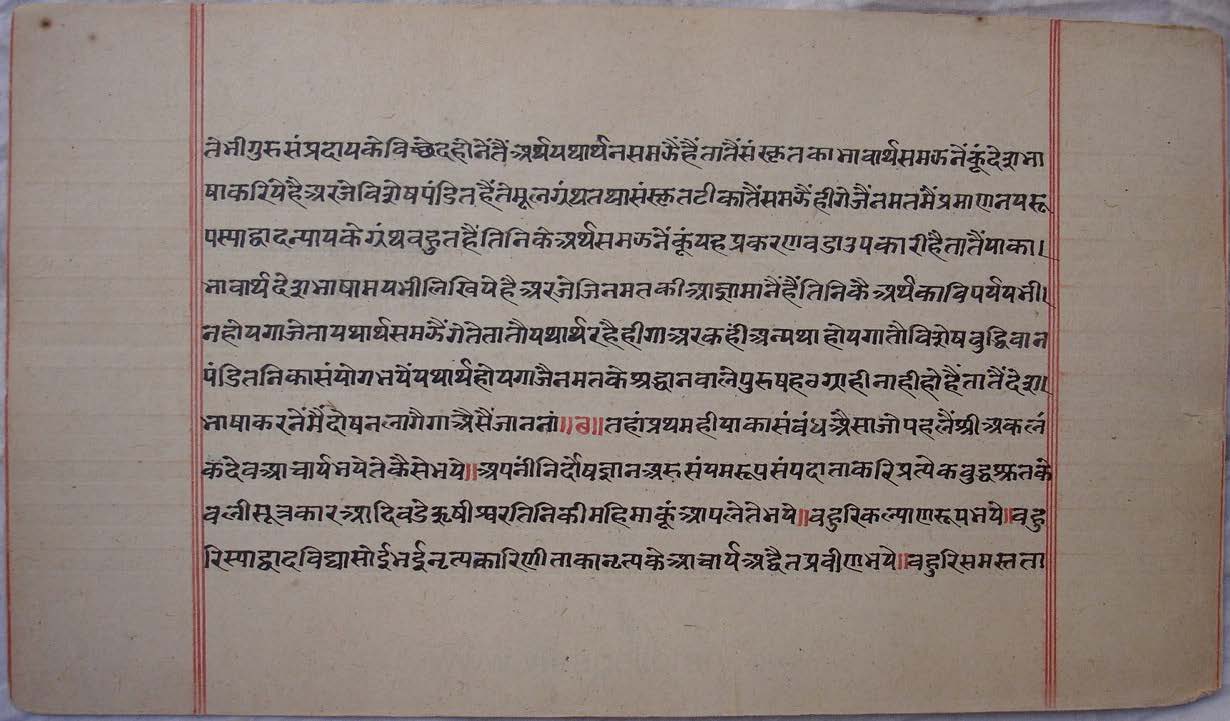 तेभीगुरुसंप्रदायकेविच्छेदहोनेंतैंअर्थयथार्थनसमझैंहैंतातैंसंस्कृतकाभावार्थसमझनेंकूंदेशभा
षाकरियेहैअरजेविशेषपंडितहैंतेमूलग्रंथतथासंस्कृतटीकातैंसमझैंहीगेजैंनमतमैंप्रमाणनयरू
पस्याद्वादन्यायकेग्रंथबहुतहैंतिनिकेअर्थसमझनेंकूंयहप्रकरणबडाउपकारीहैतातैंयाका।
भावार्थदेशभाषामयभीलिखियेहैअरजेजिनमतकीआज्ञामानैंहैंतिनिकैअर्थकाविपर्ययभी।
नहोयगाजेतायथार्थसमझैंगेतेतातौयथार्थरहैहीगाअरकहींअन्यथाहोयगातौविशेषबुद्धिवान
पंडितनिकासंयोगभयेंयथार्थहोयगाजैनमतकेश्रद्धानवालेपुरुषहठग्राहीनाहीहोहैंतातैंदेश।
भाषाकरनेंमैंदोषनलागैगाअैसैंजाननां॥ब॥तहांप्रथमहीयाकासंबंधअैसाजोपहलैंश्रीअकलं
कदेवआचार्यभयेतेकैसेभये॥अपनींनिर्दोषज्ञानअरुसंयमरूपसंपदाताकरिप्रत्येकबुद्धश्रुतके
वलीसूत्रकारआदिबडेऋषीश्वरतिनिकीमहिमाकूंआपलेतेभये॥बहुरिकल्याणरूपभये॥बहु
रिस्याद्वादविद्यासोईभईनृत्यकारिणीताकानृत्यकेआचार्यअद्वैतप्रवीणभये॥बहुरिसमस्तता